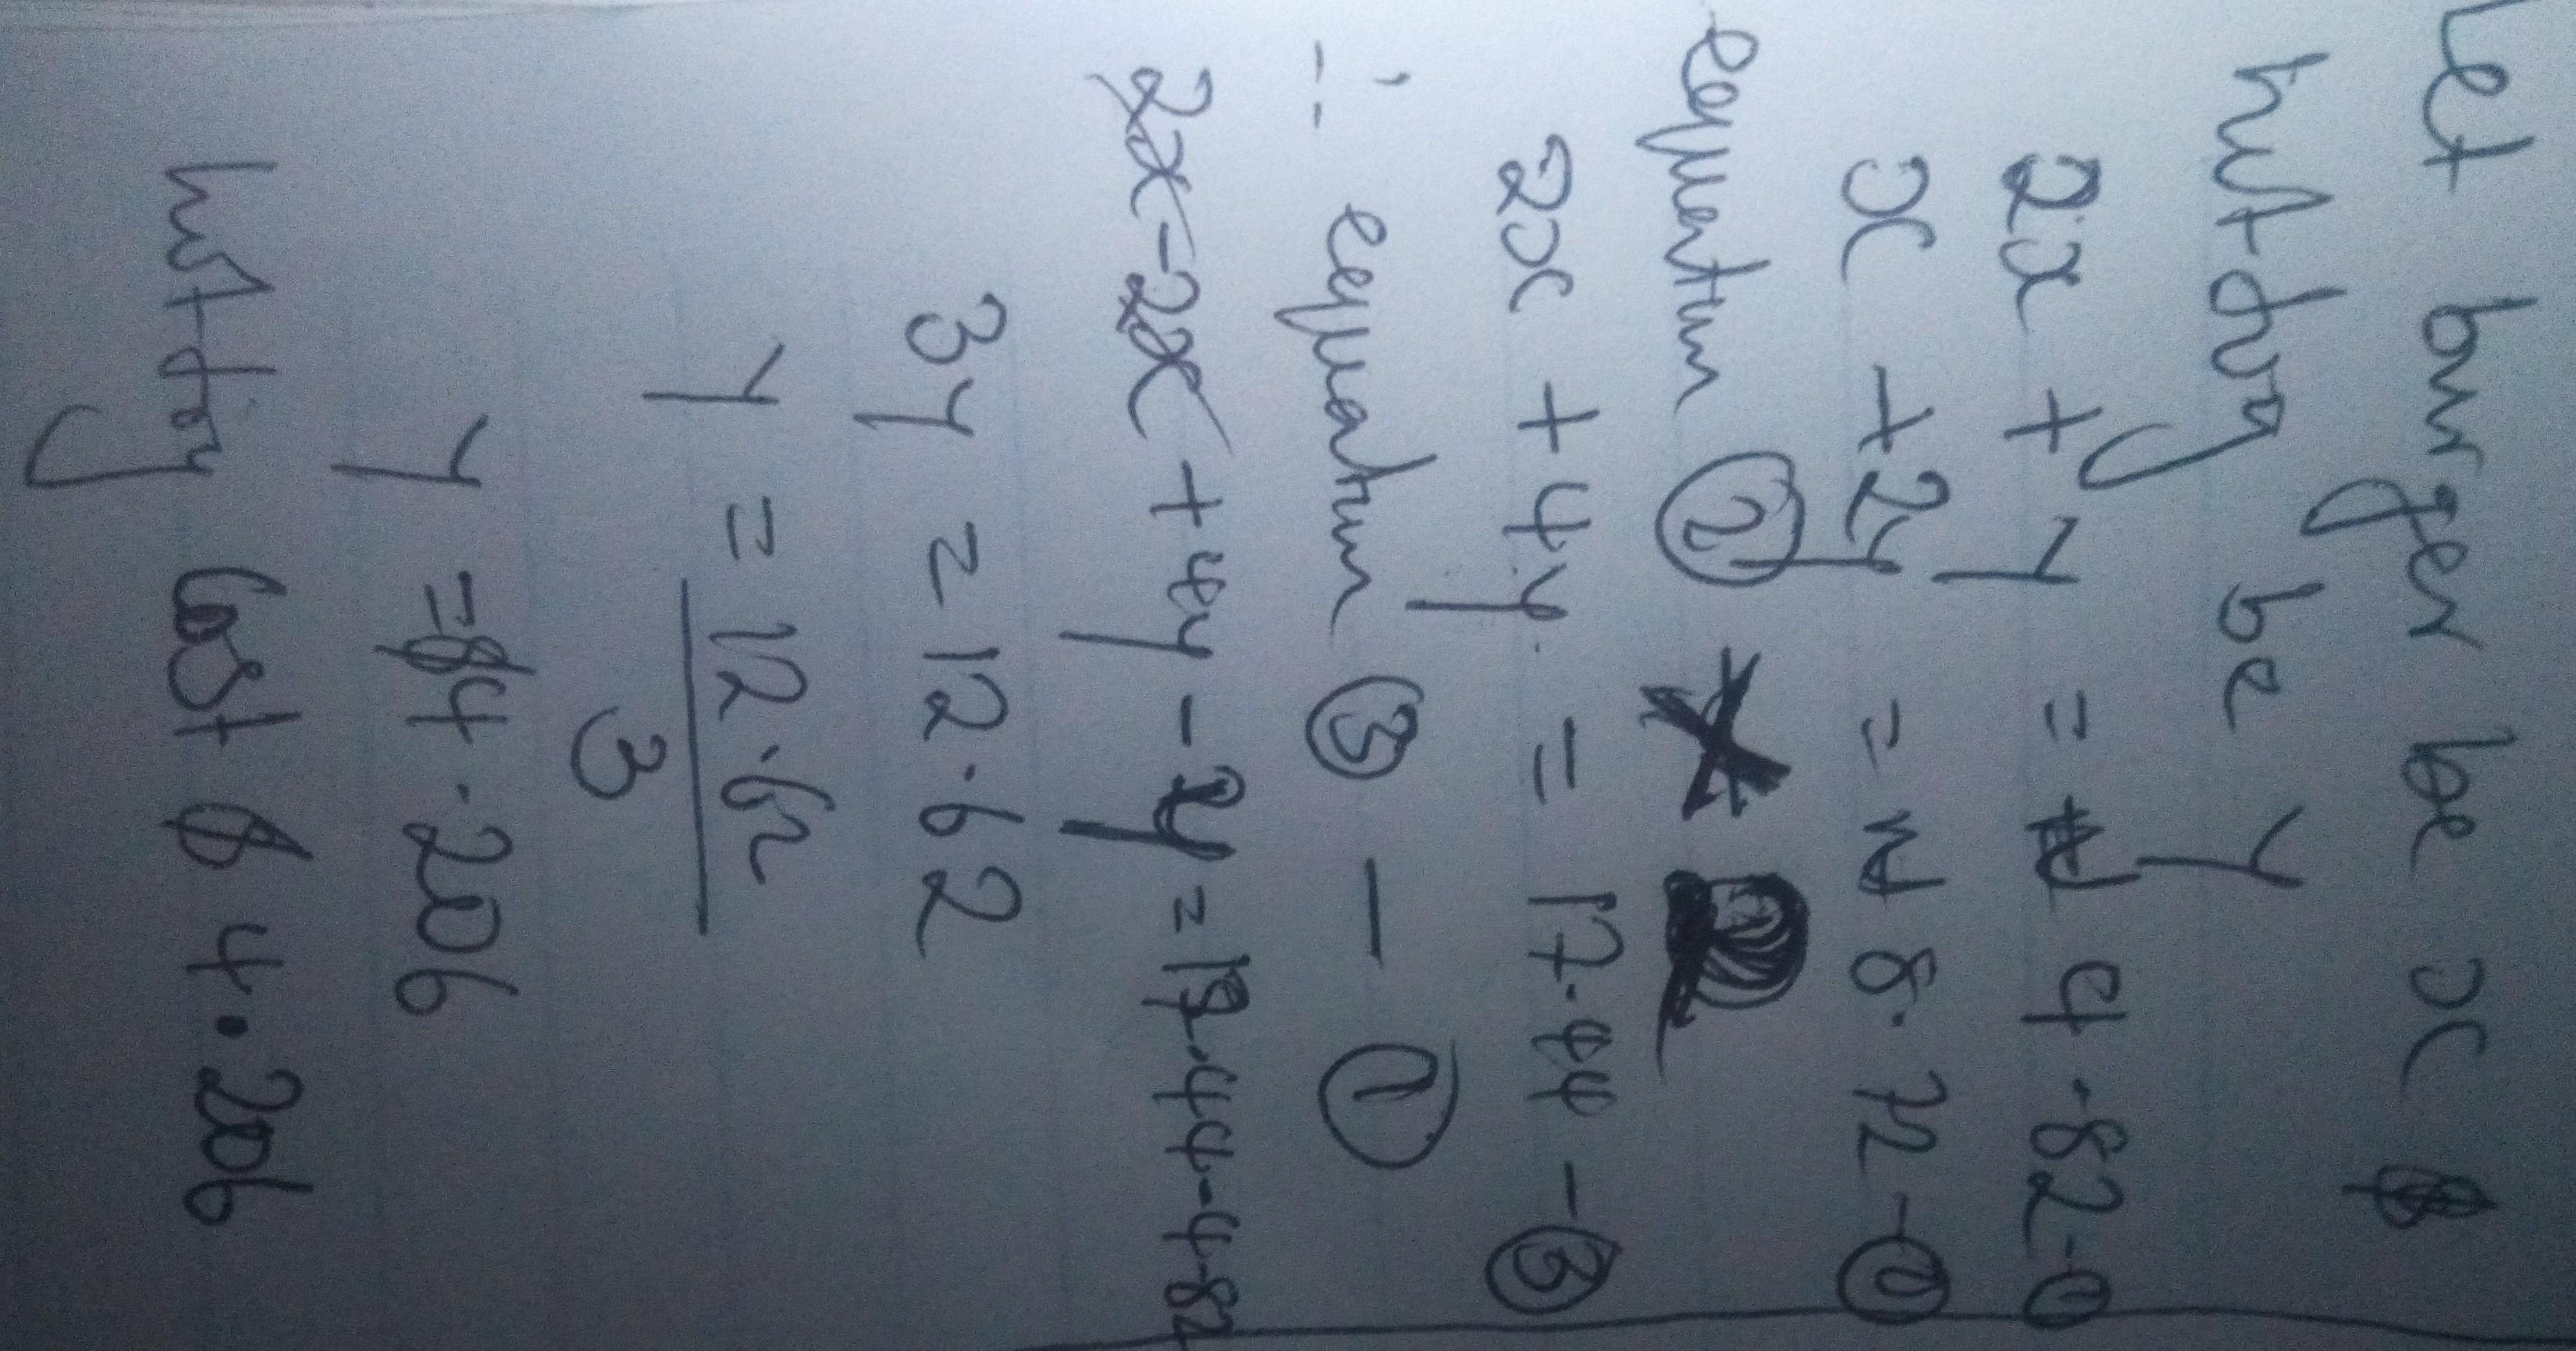 Let burger be x $
hot dog be y
2x + y = 4.82 - ①
x + 2y = 8.72 - ①
equation ② × 2
2x + 4y = 17.44 - ③
∴ equation ③ - ①
2x - 2x + 4y - y = 17.44 - 4.82
3y = 12.62
y = 12.62
3
y = 4.206
hot dog cost $ 4.206